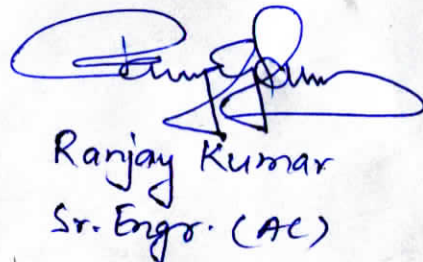 Ranjay Kumar
Sr. Engr. (AC)